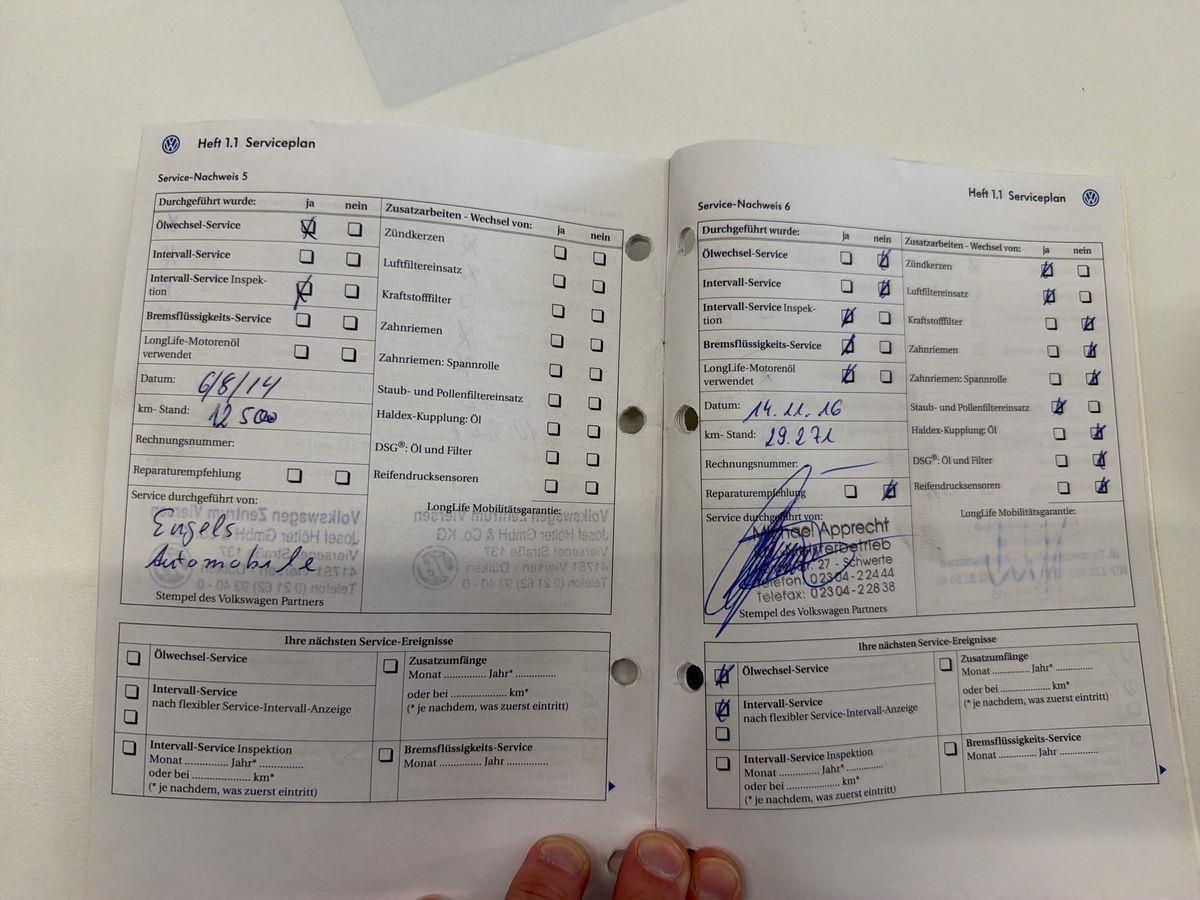 Heft 1.1 Serviceplan
Service-Nachweis 5
Durchgeführt wurde: ja nein
Ölwechsel-Service
Intervall-Service
Intervall-Service Inspek-
tion
Bremsflüssigkeits-Service
LongLife-Motorenöl
verwendet
Datum: 6/8/14
km- Stand: 12500
Rechnungsnummer:
Reparaturempfehlung
Service durchgeführt von:
Engels
Automobile
Stempel des Volkswagen Partners
Zusatzarbeiten - Wechsel von: ja nein
Zündkerzen
Luftfiltereinsatz
Kraftstofffilter
Zahnriemen
Zahnriemen: Spannrolle
Staub- und Pollenfiltereinsatz
Haldex-Kupplung: Öl
DSG®: Öl und Filter
Reifendrucksensoren
LongLife Mobilitätsgarantie:
Ihre nächsten Service-Ereignisse
Ölwechsel-Service
Intervall-Service
nach flexibler Service-Intervall-Anzeige
Intervall-Service Inspektion
Monat .............. Jahr* ..............
oder bei ...................... km*
(* je nachdem, was zuerst eintritt)
Zusatzumfänge
Monat .............. Jahr* ..............
oder bei ...................... km*
(* je nachdem, was zuerst eintritt)
Bremsflüssigkeits-Service
Monat .............. Jahr ..............
Heft 1.1 Serviceplan
Service-Nachweis 6
Durchgeführt wurde: ja nein
Ölwechsel-Service
Intervall-Service
Intervall-Service Inspek-
tion
Bremsflüssigkeits-Service
LongLife-Motorenöl
verwendet
Datum: 14.11.16
km- Stand: 29.271
Rechnungsnummer:
Reparaturempfehlung
Service durchgeführt von:
Michael Apprecht
27 - Schwerte
Telefon: 02304-22444
Telefax: 02304-22838
Stempel des Volkswagen Partners
Zusatzarbeiten - Wechsel von: ja nein
Zündkerzen
Luftfiltereinsatz
Kraftstofffilter
Zahnriemen
Zahnriemen: Spannrolle
Staub- und Pollenfiltereinsatz
Haldex-Kupplung: Öl
DSG®: Öl und Filter
Reifendrucksensoren
LongLife Mobilitätsgarantie:
Ihre nächsten Service-Ereignisse
Ölwechsel-Service
Intervall-Service
nach flexibler Service-Intervall-Anzeige
Intervall-Service Inspektion
Monat .............. Jahr* ..............
oder bei ...................... km*
(* je nachdem, was zuerst eintritt)
Zusatzumfänge
Monat .............. Jahr* ..............
oder bei ...................... km*
(* je nachdem, was zuerst eintritt)
Bremsflüssigkeits-Service
Monat .............. Jahr ..............